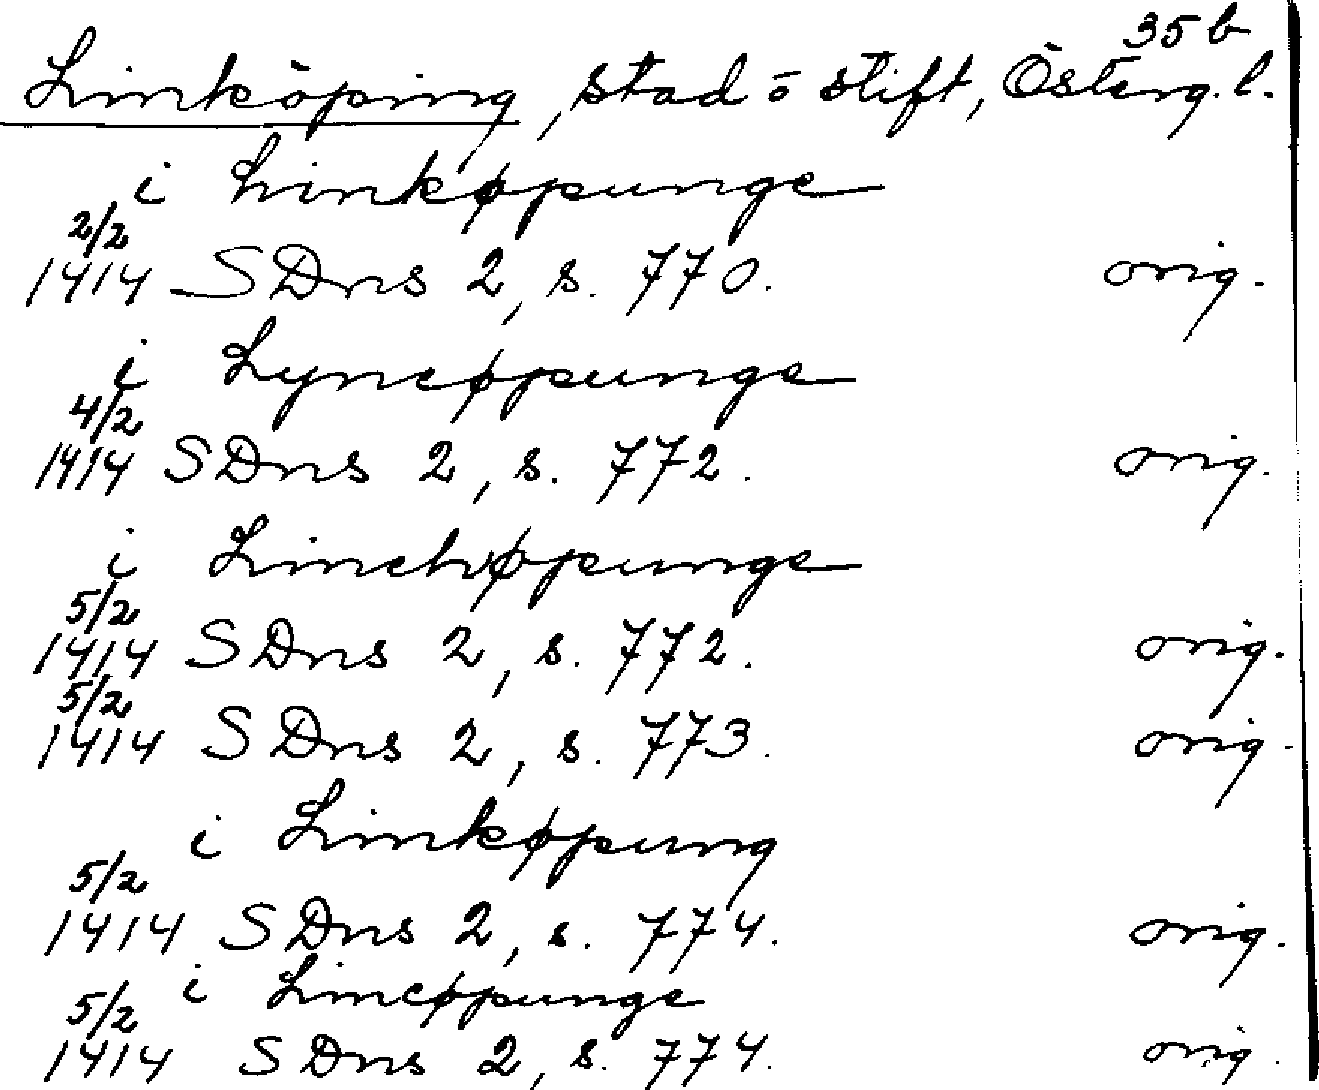 35 b
Linköping, stad o stift, Österg. l.
i Linkøpunge
2/2
1414 SDns 2, s. 770. orig.
i Lyncøpunge
4/2
1414 SDns 2, s. 772. orig.
i Linchøpunge
5/2
1414 SDns 2, s. 772. orig.
5/2
1414 SDns 2, s. 773. orig.
i Linkøpung
5/2
1414 SDns 2, s. 774. orig.
i Lincøpunge
5/2
1414 SDns 2, s. 774. orig.